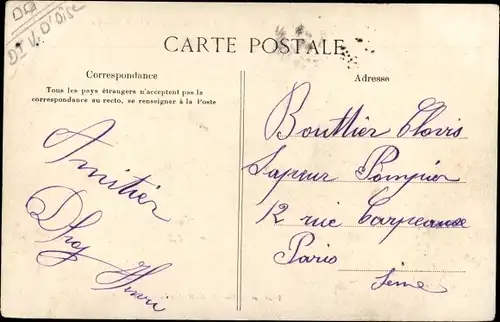 DI V. D'Oise
CARTE POSTALE
Correspondance
Tous les pays étrangers n'acceptent pas la
correspondance au recto, se renseigner à la Poste
Adresse
Amitier
Henri
Bouttier Clovis
Sapeur Pompier
12 rue Carpeaux
Paris
Seine